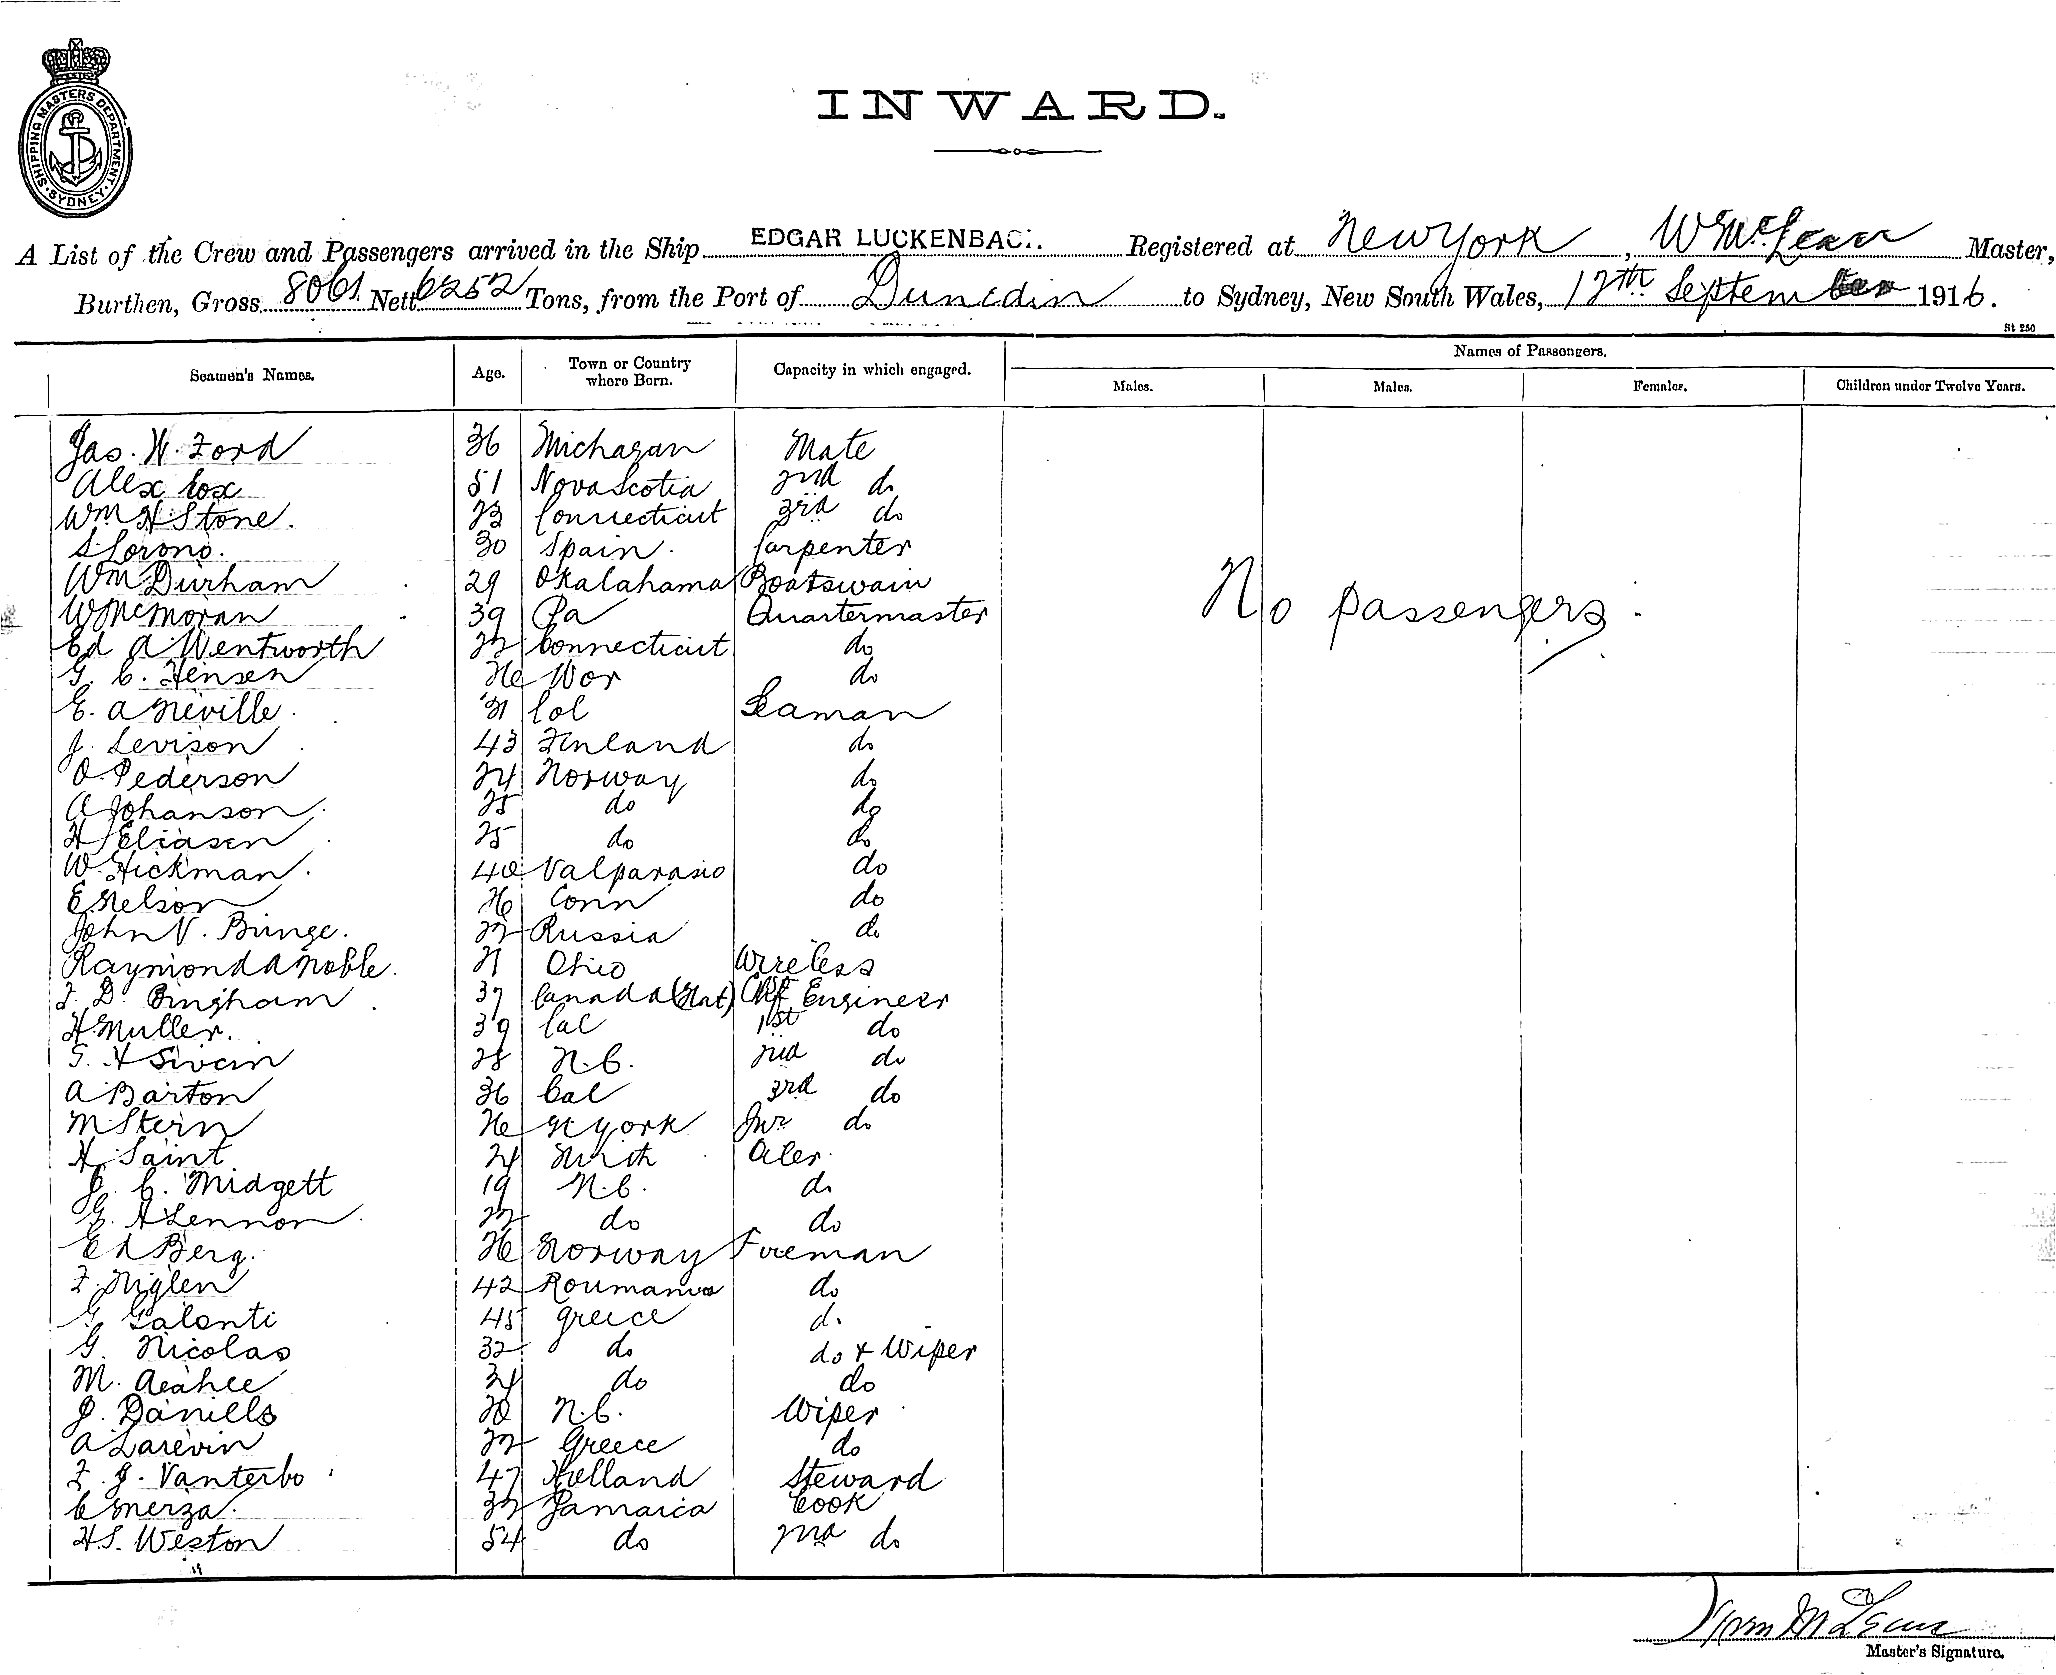 SHIPPING MASTERS DEPARTMENT. SYDNEY.
INWARD.
A List of the Crew and Passengers arrived in the Ship EDGAR LUCKENBAC. Registered at New York, W McLean Master,
Burthen, Gross 8061 Nett 6252 Tons, from the Port of Dunedin to Sydney, New South Wales, 12th September 1916.
St 250
Seamen's Names. Age. Town or Country where Born. Capacity in which engaged. Names of Passengers.
Males. Males. Females. Children under Twelve Years.
Jas. H. Ford 36 Michagan Mate
Alex Cox 51 Nova Scotia 2nd do
Wm H Stone. 23 Connecticut 3rd do
S. Lorono. 30 Spain. Carpenter
Wm Durham 29 Okalahama Boatswain
W McMoran 39 Pa Quartermaster
No passengers.
Ed A Wentworth 22 Connecticut do
G. C. Hensen 26 Wor do
E. A Neville. 31 Col Seaman
J. Levison 43 Finland do
O. Pederson 24 Norway do
A Johanson. 25 do do
H Eliasen 25 do do
W. Hickman. 40 Valparasio do
E. Nelson 26 Conn do
John V. Bringe. 22 Russia do
Raymond A Noble. 21 Ohio Wireless
F. D. Bingham 37 Canada (Nat) Chf Engineer
H. Muller. 39 Cal 1st do
G. H Swan 28 N.C. 2nd do
A Barton 36 Cal 3rd do
M Stern 26 N York Jnr do
H. Saint 24 Oiler.
J. C. Midgett 19 N.C. do
E. A Lennon 22 do do
Ed Berg. 26 Norway Fireman
F. Niglen 42 Roumania do
G Galonti 45 Greice do
G. Nicolas 32 do do & Wiper
M. 24 do do
J. Daniells 20 N.C. Wiper
A Larevin 22 Greece do
F. J. Vanterbo 47 Holland Steward
C Merza. 32 Jamaica Cook
H S. Weston 54 do 2nd do
Wm McLean
Master's Signature.